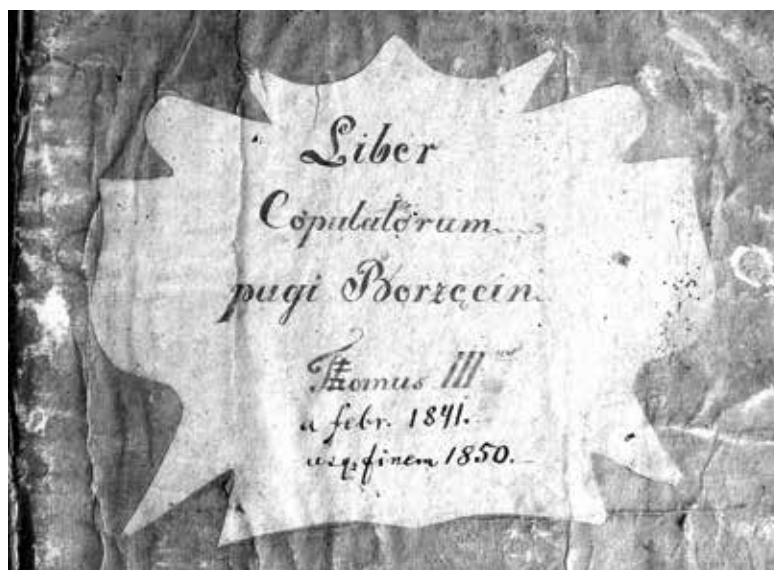 Liber
Copulatorum
pagi Borzęcin
Tomus III
a febr. 1841.
usq; finem 1850.